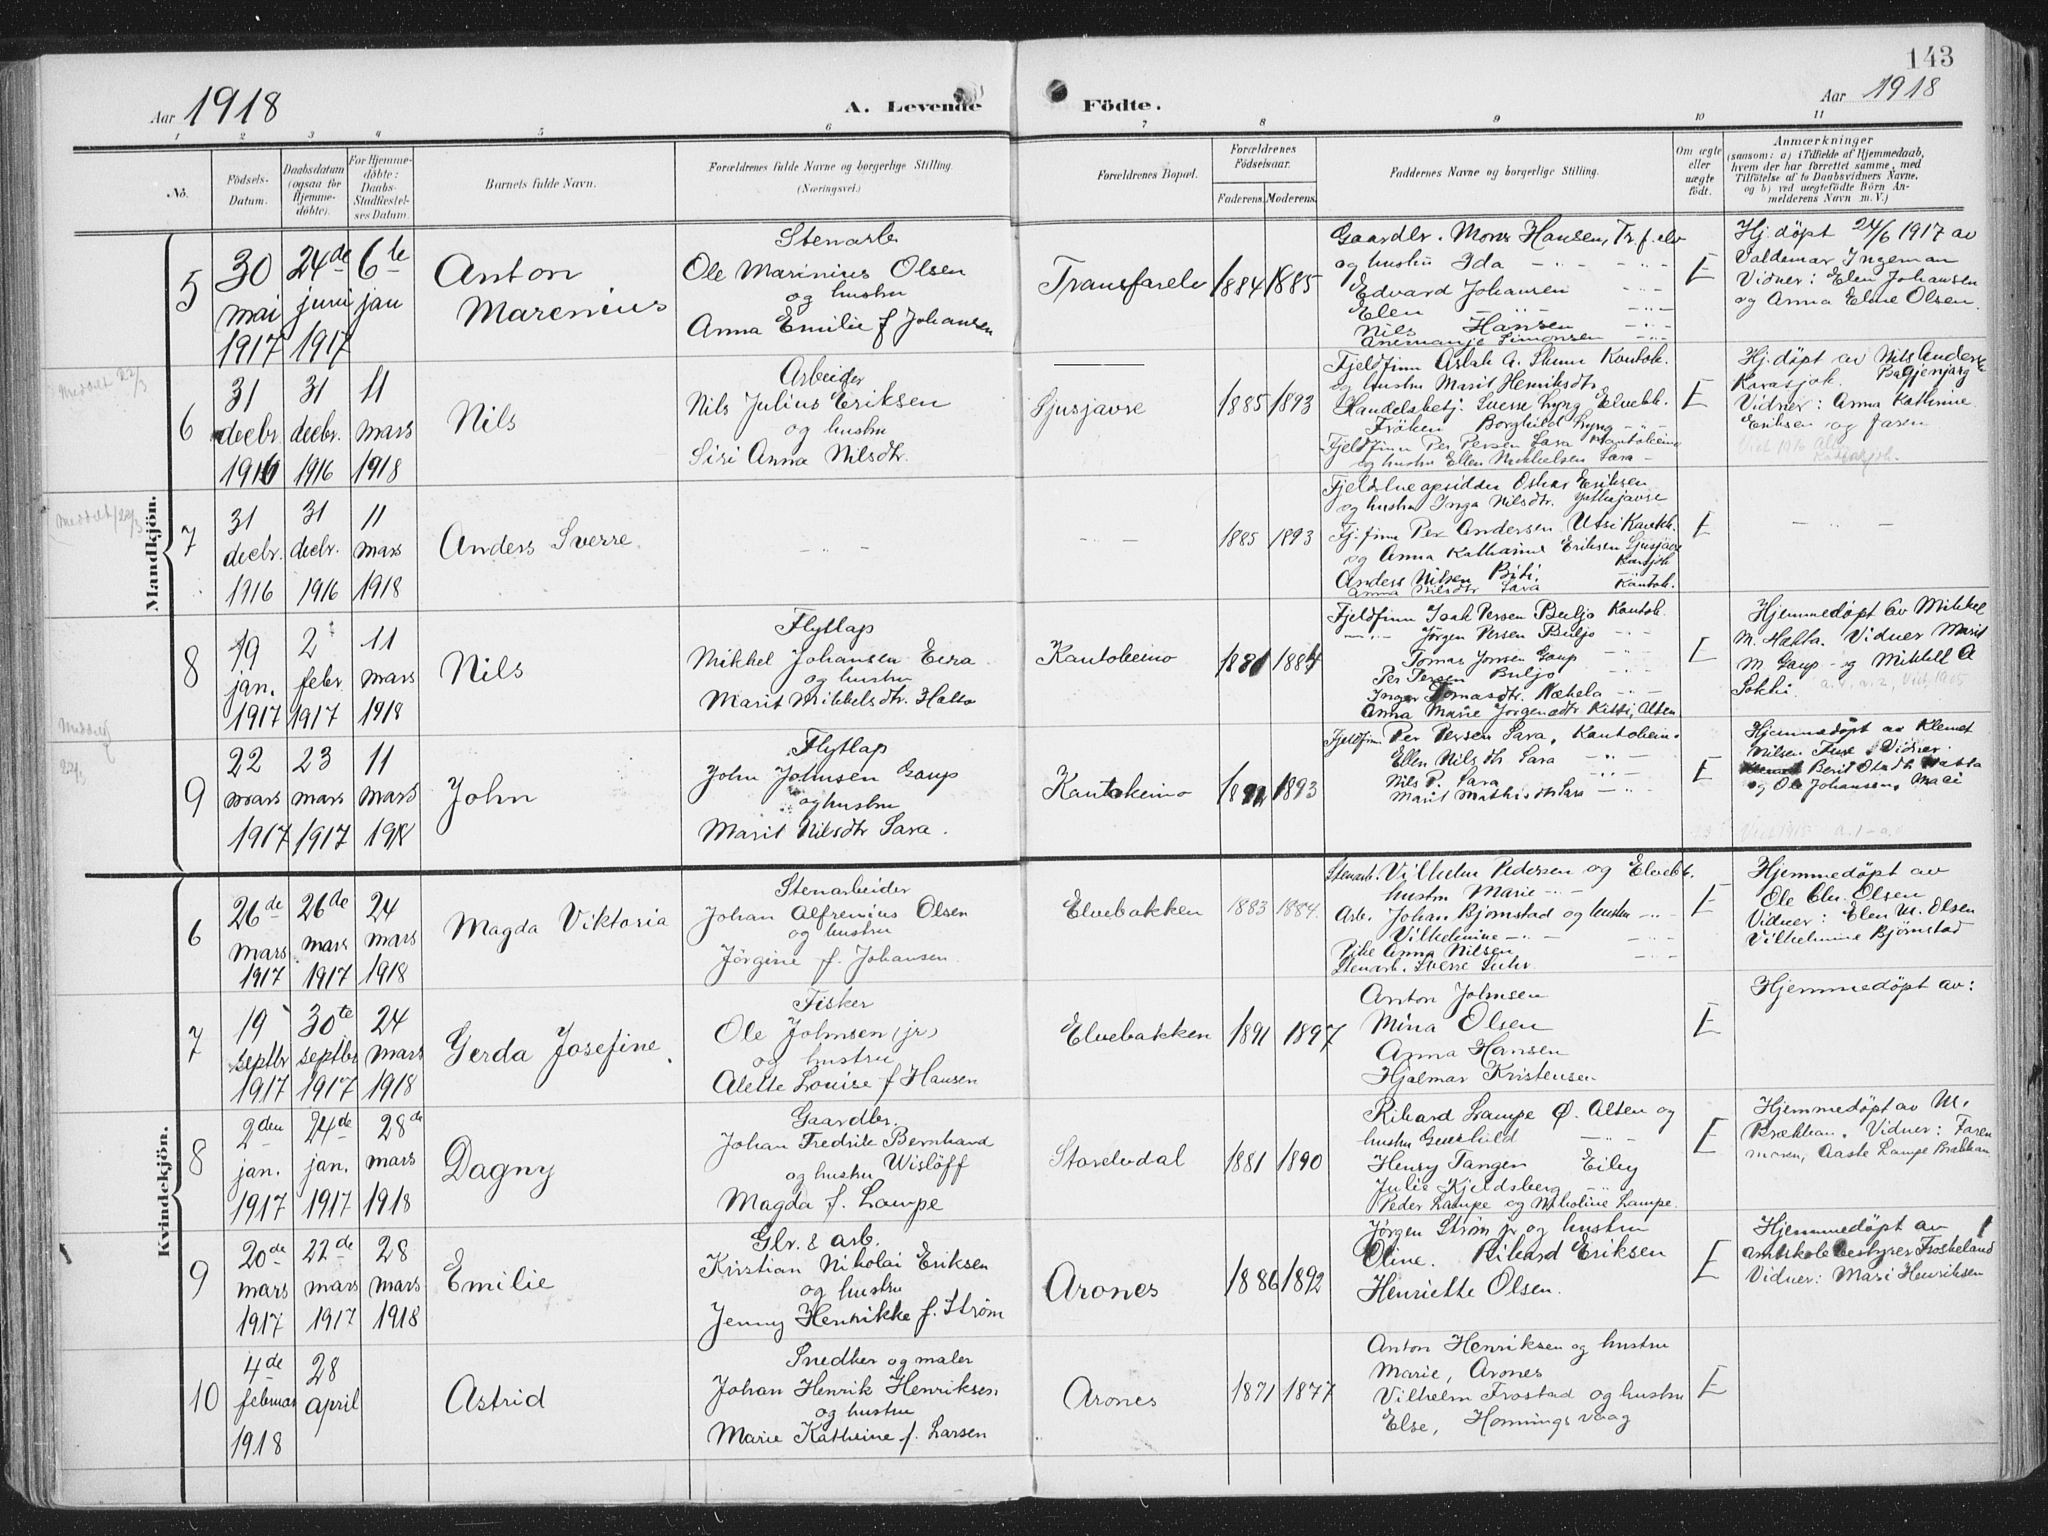 143
Aar 1918
A. Levende Födte.
Aar 1918
1 2 3 4 5 6 7 8 9 10 11
No.
Födsels-
Datum.
Daabsdatum
(ogsaa for
Hjemme-
döbte).
For Hjemme-
döbte:
Daabs-
Stadfæstel-
ses Datum.
Barnets fulde Navn.
Forældrenes fulde Navne og borgerlige Stilling.
(Næringsvei.)
Forældrenes Bopæl.
Forældrenes
Födselsaar.
Faderens. Moderens.
Faddernes Navne og borgerlige Stilling.
Om ægte
eller
uægte
födt.
Anmærkninger
(saasom: a) i Tilfælde af Hjemmedaab,
hvem der har forrettet samme, med
Tilföielse af to Daabsvidners Navne,
og b) ved uægtefödte Börn An-
melderens Navn m. V.)
Mandkjön.
5
30
mai
1917
24de
juni
1917
6te
jan
Anton
Marenius
Stenarb
Ole Marinius Olsen
og hustru
Anna Emilie f Johansen
Transfarelv
1884 1885
Gaardbr. Mons Hansen, Tr.f.elv
og hustru Ida
Edvard Johansen
Elen
Nils Hansen
Anemanje Simonsen
E
Hj. døpt 24/6 1917 av
Valdemar Ingeman
Vidner: Elen Johansen
og Anna Eline Olsen.
Meddelt 22/3
6
31
decbr.
1916
31
decbr.
1916
11
mars
1918
Nils
Arbeider
Nils Julius Eriksen
og hustru
Siri Anna Nilsdtr.
Sjusjavre
1885 1893
Fjeldfinn Aslak A. Skum Kautok.
og hustru Marit Henriksdtr
Handelsbetj. Sverre Lyng Elvebk.
Frøken Borghild Lyng
Fjeldfinn Per Persen Sara Kautokeino
og hustru Ellen Mikkelsen Sara
E
Hj. døpt av Nils Anders
Karasjok.
Vidner: Anna Kathrine
Eriksen og faren
Meddelt 22/3
7
31
decbr.
1916
31
decbr.
1916
11
mars
1918
Anders Sverre
1885 1893
Fjeldstueopsidder Oskar Eriksen
og hustru Inga Nilsdtr.
Fj.finn Per Andersen Utsi Kautok.
og Anna Katharine Eriksen Sjusjavre
Anders Nilsen Kautok.
Anna Nilsdtr Sara Kautok.
E
8
19
jan.
1917
2
febr.
1917
11
mars
1918
Nils
Flytlap
Mikkel Johansen Eira
og hustru
Marit Mikkelsdtr. Hætta
Kautokeino
1881 1884
Fjeldfinn Isak Persen Buljo Kautok.
Jørgen Persen Buljo
Tomas Jonsen Gaup
Per Persen Buljo
Inger Tomasdtr. Nækela
Anna Marie Jørgensdtr Kitti, Alten
E
Hjemmedøpt av Mikkel
M. Hætta. Vidner Marit
M. Gaup og Mikkel A
Sokki.
9
22
mars
1917
23
mars
1917
11
mars
1918
John
Flytlap
John Johnsen Gaup
og hustru
Marit Nilsdtr Sara.
Kautokeino
1892 1893
Fjeldfinn Per Persen Sara, Kautokeino
Ellen Nilsdtr Sara
Nils P. Sara
Marit Mathisdtr Sara
E
Hjemmedøpt av Klemet
Nilsen. Vidner
Berit Olsdtr. Hætta
og Ole Johansen
Kvindekjön.
6
26de
mars
1917
26de
mars
1917
24
mars
1918
Magda Viktoria
Stenarbeider
Johan Alfrenius Olsen
og hustru
Jørgine f. Johansen.
Elvebakken
1883 1884.
Stenarb. Vilhelm Pedersen og Elvebk.
hustru Marie
Arb. Johan Bjørnstad og hustru
Vilhelmine
Pike Anna Nilsen
Stenarb. Sverre Suhr
E
Hjemmedøpt av
Ole Chr. Olsen
Vidner: Elen M. Olsen
Vilhelmine Bjørnstad
7
19
septbr
1917
30te
septbr
1917
24
mars
1918
Gerda Josefine.
Fisker
Ole Johnsen (jr)
og hustru
Alette Louise f Hansen
Elvebakken
1891 1897
Anton Johnsen
Mina Olsen
Anna Hansen
Hjalmar Kristensen
E
Hjemmedøpt av:
8
2den
jan.
1917
24de
jan.
1917
28de
mars
1918
Dagny
Gaardbr.
Johan Fredrik Bernhard
og hustru Wisløff
Magda f. Lampe
Storelvdal
1881 1890
Rikard Lampe Ø. Alten og
hustru Gunhild
Henry Tangen Eiby
Julie Kjeldsberg
Peder Lampe og Nikoline Lampe.
E
Hjemmedøpt av M.
Brækkan. Vidner: Faren
moren, Aaste Lampe Brækkan
9
20de
mars
1917
22de
mars
1917
28
mars
1918
Emilie
Gbr. & arb.
Kristian Nikolai Eriksen
og hustru
Jenny Henrikke f. Strøm
Arones
1886 1892
Jørgen Strøm jr og hustru
Oline. Rikard Eriksen
Henriette Olsen.
E
Hjemmedøpt av
amtskolebestyrer Froskeland
Vidner: Mari Henriksen
10
4de
februar
1918
28
april
Astrid
Snedker og maler
Johan Henrik Henriksen
og hustru
Marie Kathrine f. Larsen
Arones
1871 1877
Anton Henriksen og hustru
Marie, Arones
Vilhelm Frostad og hustru
Else, Honningsvaag
E